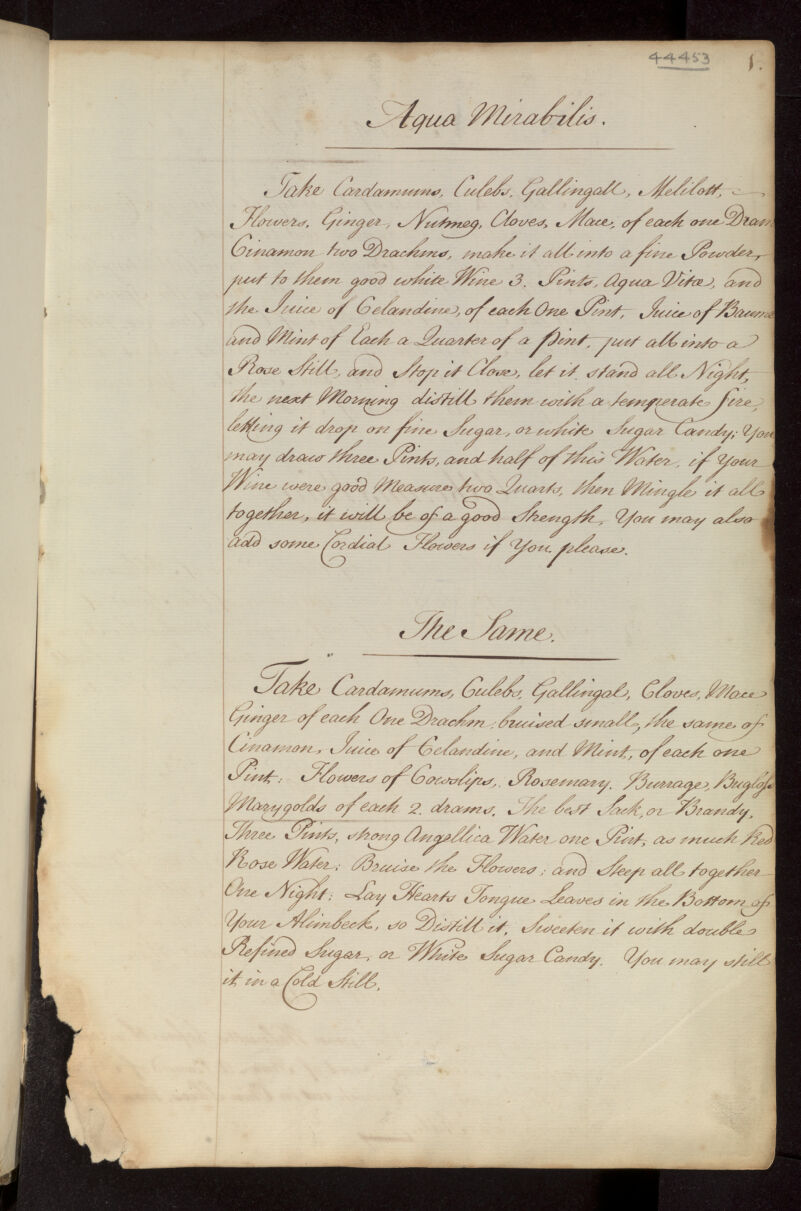 44453 1.
Aqua Mirabilis.
Take Cardamums, Culebs, Gallingall, Melilott,
Flowers, Ginger, Nutmeg, Cloves, Mace, of each one Dram
Cinamon two Drachms, make it all into a fine Powder,
put to them good white Wine 3. Pints, Aqua Vitæ, and
the Juice of Celandine, of each One Pint, Juice of Baume
and Mint of Each a Quarter of a pint, put all into a
Rose Still, and Stop it Close, let it stand all Night,
the next Morning distill them with a temperate fire,
letting it drop on fine Sugar, or white Sugar Candy; You
may draw three Pints, and half of this Water, if Your
Wine were good Measure two Quarts, then Mingle it all
together, it will be of a good Strength, You may also
add some Cordial Flowers if You please.
The Same.
Take Cardamums, Culebs, Gallingal, Cloves, Mace
Ginger of each One Drachm, bruised small, the same of
Cinamon, Juice of Celandine, and Mint, of each one
Pint: Flowers of Cowslips, Rosemary, Burrage, Bugloss
Marygolds of each 2 drams, The best Sack, or Brandy,
Three Pints, strong Angellica Water one Pint, as much Red
Rose Water: Bruise the Flowers; and Steep all together
One Night; Lay Hearts Tongue Leaves in the Bottom of
Your Alimbeck, so Distill it, Sweeten it with double
Refined Sugar, or White Sugar Candy. You may still
it in a Cold Still.